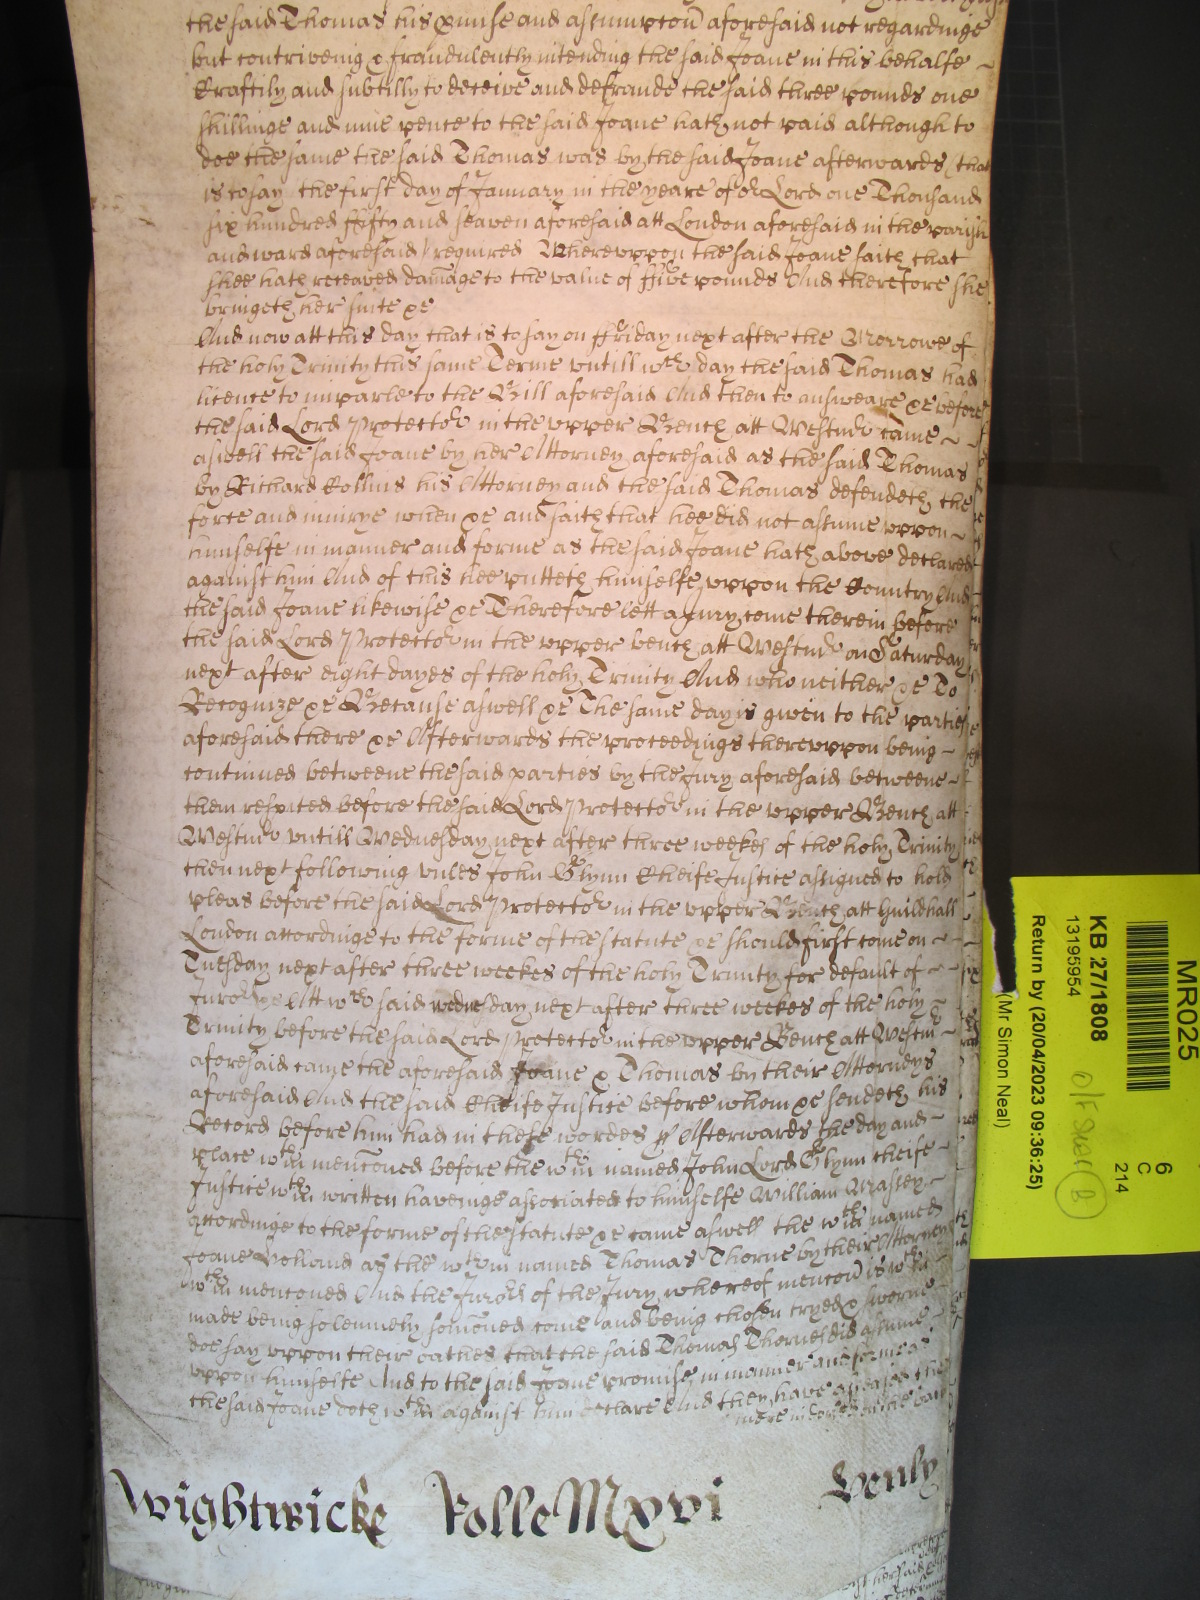 the said Thomas his pmise and assumpcon aforesaid not regardinge
but contriveing & fraudulently intending the said Joane in this behalfe
Craftily and subtilly to deceive and defraude the said three pounds one
shillinge and nine pence to the said Joane hath not paid although to
doe the same the said Thomas was by the said Joane afterwards (that
is to say the first day of January in the yeare of or Lord one Thousand
six hundred fifty and seaven aforesaid att London aforesaid in the parish
and ward aforesaid) required Whereuppon the said Joane saith that
shee hath receaved damage to the value of ffive pounds And therefore she
bringeth her suite &c
And now att this day that is to say on ffriday next after the Morrowe of
the holy Trinity this same Terme untill wch day the said Thomas had
licence to imparle to the Bill aforesaid And then to answeare &c before
the said Lord Protector in the upper Bench att Westmr came
aswell the said Joane by her Attorney aforesaid as the said Thomas
by Richard Collins his Attorney and the said Thomas defendeth the
force and iniurye when &c and saith that hee did not assume uppon
himselfe in manner and forme as the said Joane hath above declared
against him And of this hee putteth himselfe uppon the Country And
the said Joane likewise &c Therefore lett a Jury come therein before
the said Lord Protector in the upper bench att Westmr on Saturday
next after eight dayes of the holy Trinity And who neither &c To
Recognize &c Because aswell &c The same day is given to the parties
aforesaid there &c Afterwards the proceedings thereuppon being
continued betweene the said parties by the Jury aforesaid betweene
them respited before the said Lord Protector in the upper Bench att
Westmr untill Wednesday next after three weekes of the holy Trinity
then next following unles John Glynn Cheife Justice assigned to hold
pleas before the said Lord Protector in the upper Bench att Guildhall
London accordinge to the forme of the statute &c should first come on
Tuesday next after three weekes of the holy Trinity for default of
Juror &c Att wch said wednesday next after three weekes of the holy
Trinity before the said Lord Protector in the upper Bench att Westmr
aforesaid came the aforesaid Joane & Thomas by their Attorneys
aforesaid And the said Cheife Justice before whom &c sendeth his
Record before him had in these wordes ss Afterwards the day and
place wthin mencioned before the wthin named John Lord Glynn cheife
Justice wthin written haveinge associated to himselfe William Massey
accordinge to the forme of the statute &c came aswell the wthin named
Joane Holland as the wthin named Thomas Thorne by their Attorneys
wthin mencioned And the Jurors of the Jury whereof mencon is wthin
made being solemnely somoned come and being chosen tryed & sworne
doe say uppon their oathes that the said Thomas Thorne did assume
uppon himselfe And to the said Joane promise in manner and forme as
the said Joane doth wthin against him declare And they have assessed the
Wightwicke Rolle Mxvi Henly
MR025
6
C
214
KB 27/1808
13195954
Return by (20/04/2023 09:36:25)
(Mr Simon Neal)